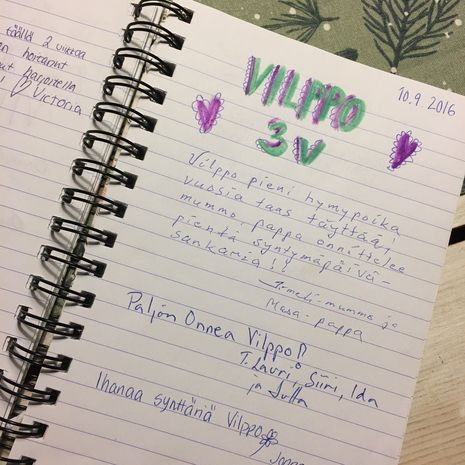 täällä 2 viikkoa
hoitanut
harjoitella
! Victoria
10.9.2016
VILPPO
3V
Vilppo pieni hymypoika
vuosia taas täyttää!
mummo pappa onnittelee
pientä syntymäpäivä-
sankaria!!
T:meti-mummo ja
Masa-pappa
Paljon Onnea Vilppo!!
T. Lauri, Siiri, Ida
ja Jutta
Ihanaa synttäriä Vilppo